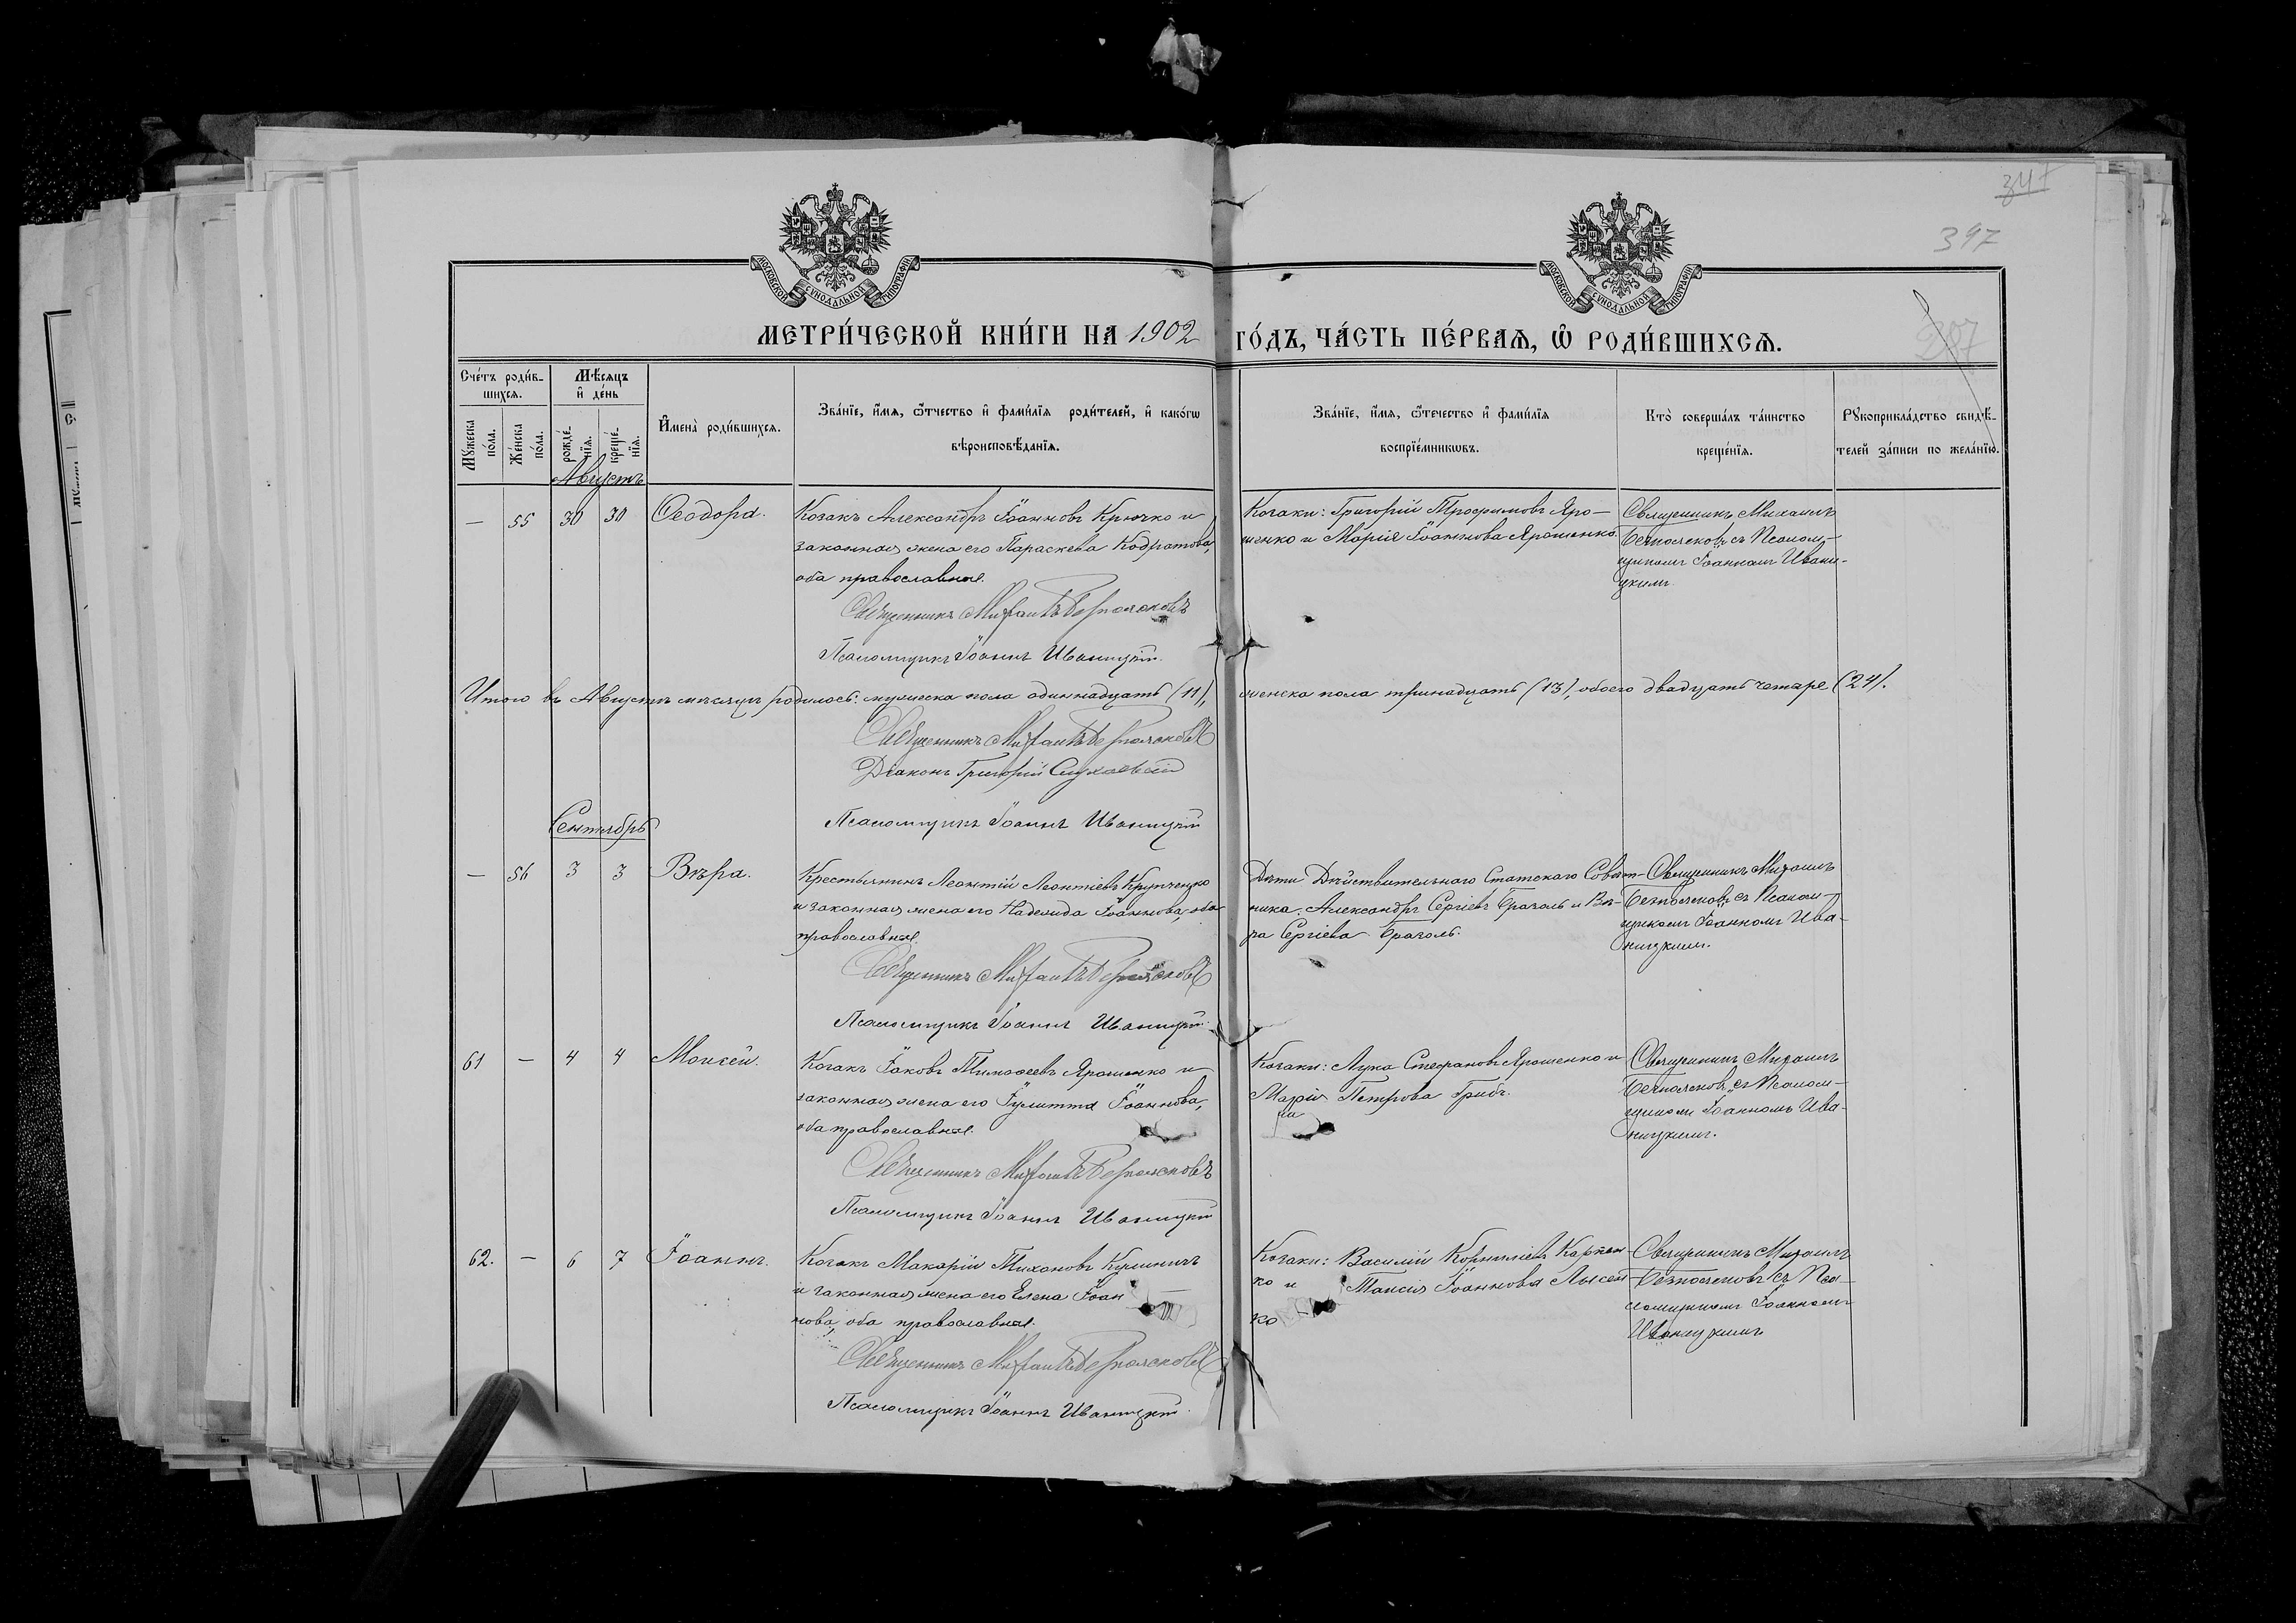 347
397
207
МОСКОВСКОЙ СУНОДАЛЬНОЙ ТИПОГРАФІИ
МОСКОВСКОЙ СУНОДАЛЬНОЙ ТИПОГРАФІИ
МЕТРИ́ЧЕСКОЙ КНИ́ГИ НА 1902 ГО́ДЪ, ЧА́СТЬ ПЕ́РВАѦ, Ѡ҆ РОДИ́ВШИХСѦ.
Сче́тъ роди́в-
шихсѧ.
Мѣ́сѧцъ
и҆ де́нь
Мꙋ́жеска
по́ла.
Же́нска
по́ла.
рожде́-
нїѧ.
креще́-
нїѧ.
И҆мена̀ роди́вшихсѧ.
Зва́нїе, и҆́мѧ, ѻ҆́тчество и҆ фами́лїѧ роди́телей, и҆ како́гѡ
вѣроисповѣ́данїѧ.
Зва́нїе, и҆́мѧ, ѻ҆́течество и҆ фами́лїѧ
воспрїе́мникѡвъ.
Кто̀ соверша́лъ та́инство
креще́нїѧ.
Рꙋкоприкла́дство свидѣ́-
телей за́писи по жела́нїю.
Августъ
— 55 30 30 Ѳеодора.
Козакъ Александръ Іоанновъ Крючко и
законная жена его Параскева Кодратова,
оба православные.
Священникъ Михаилъ Безпалековъ
Псаломщикъ Іоаннъ Иваницкій.
Козаки: Григорій Трофимовъ Яро-
шенко и Марія Іоаннова Ярошенко.
Священникъ Михаилъ
Безпалековъ съ Псалом-
щикомъ Іоанномъ Ивани-
цкимъ.
Итого въ Августѣ мѣсяцѣ родилось: мужеска пола одиннадцать (11), женска пола тринадцать (13), обоего двадцать четыре (24).
Священникъ Михаилъ Безпалековъ
Діаконъ Григорій
Псаломщикъ Іоаннъ Иваницкій
Сентябрь
— 56 3 3 Вѣра.
Крестьянинъ Леонтій Леонтіевъ Крупченко
и законная жена его Надежда Іоаннова, оба
православные.
Священникъ Михаилъ Безпалековъ
Псаломщикъ Іоаннъ Иваницкій.
Дѣти Дѣйствительнаго Статскаго Совѣт-
ника: Александръ Сергіевъ Брагаль и Вѣ-
ра Сергіева Брагаль.
Священникъ Михаилъ
Безпалековъ съ Псалом-
щикомъ Іоанномъ Ива-
ницкимъ.
61 — 4 4 Моисей.
Козакъ Іаковъ Тимоѳеевъ Ярошенко и
законная жена его Іулитта Іоаннова,
оба православные.
Священникъ Михаилъ Безпалековъ
Псаломщикъ Іоаннъ Иваницкій
Козаки: Лука Стефановъ Ярошенко и
Марія Петрова Грибъ.
Священникъ Михаилъ
Безпалековъ съ Псалом-
щикомъ Іоанномъ Ива-
ницкимъ.
62. — 6 7 Іоаннъ.
Козакъ Макарій Тихоновъ Кулиничъ
и законная жена его Елена Іоан
нова, оба православные.
Священникъ Михаилъ Безпалековъ
Псаломщикъ Іоаннъ Иваницкій.
Козаки: Василій Корниліевъ Карпен-
ко и Таисія Іоаннова Лысен-
ко
Священникъ Михаилъ
Безпалековъ съ Пса-
ломщикомъ Іоанномъ
Иваницкимъ